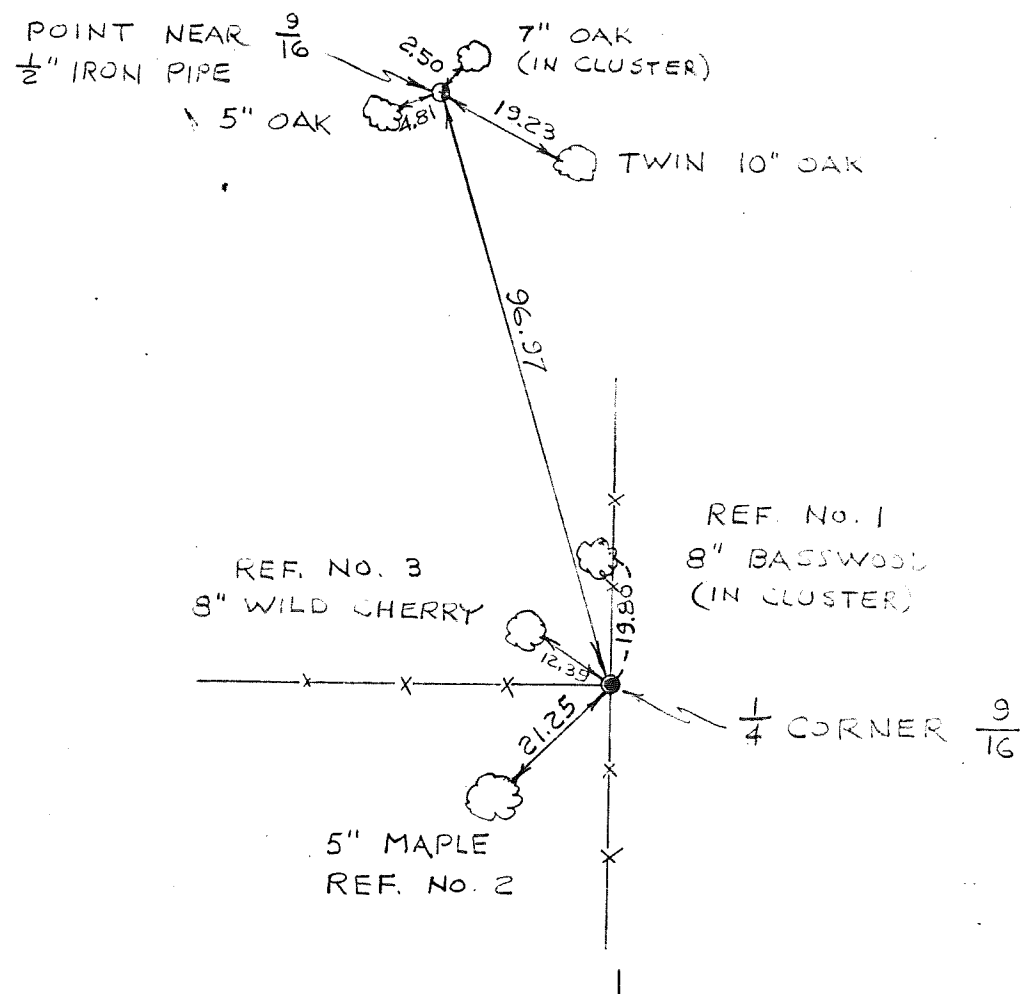 POINT NEAR 9/16
1/2" IRON PIPE
2.50
7" OAK
(IN CLUSTER)
5" OAK
4.81
19.23
TWIN 10" OAK
96.97
REF. NO. 1
8" BASSWOOD
(IN CLUSTER)
REF. NO. 3
8" WILD CHERRY
19.80
12.39
21.25
1/4 CORNER 9/16
5" MAPLE
REF. NO. 2